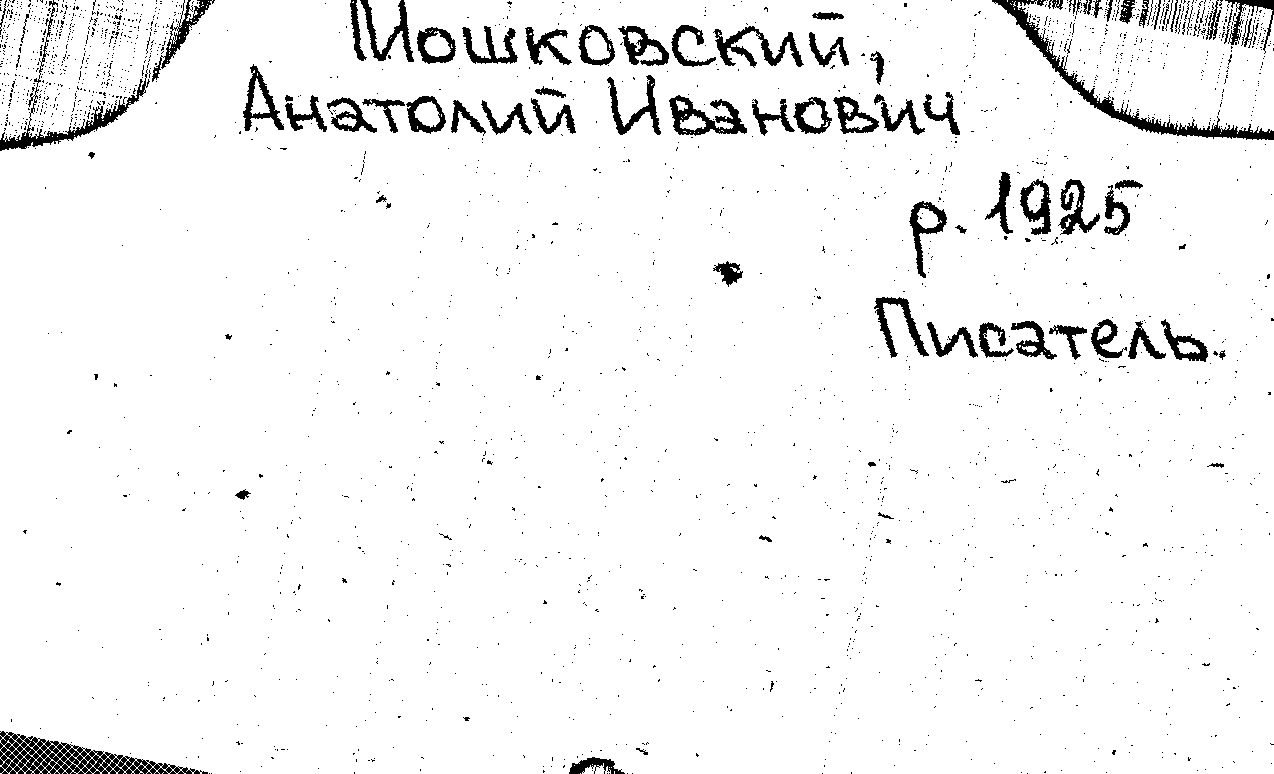 Мошковский,
Анатолий Иванович
р. 1925
Писатель.